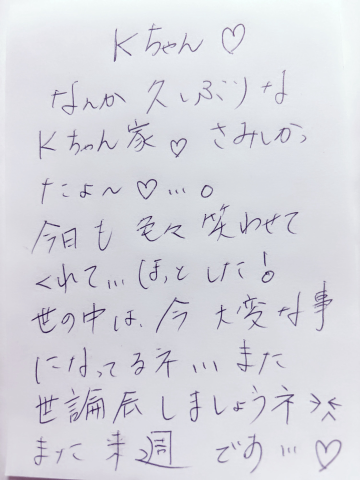 Kちゃん♡
なんか久しぶりな
Kちゃん家♡さみしかっ
たょ〜♡…。
今日も色々笑わせて
くれて…ほっとした!。
世の中は、今大変な事
になってるネ…また
世論辰しましょうネ
また来週です…♡